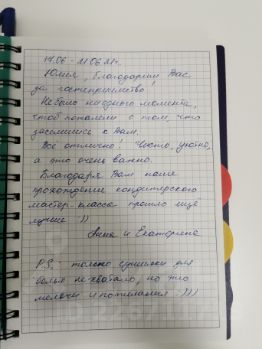 17.06 - 21.06.21г.
Юлия, благодарим Вас
за гостеприимство!
Не было ни одного момента,
чтоб пожалели о том, что
заселились к Вам.
Всё отлично! Чисто, уютно,
а это очень важно.
Благодаря Вам наше
прохождение кондитерского
мастер-класса прошло ещё
лучше :))
Анна и Екатерина
P.S. - только сушилки для
белья не хватало, но это
мелочи и понимания :)))